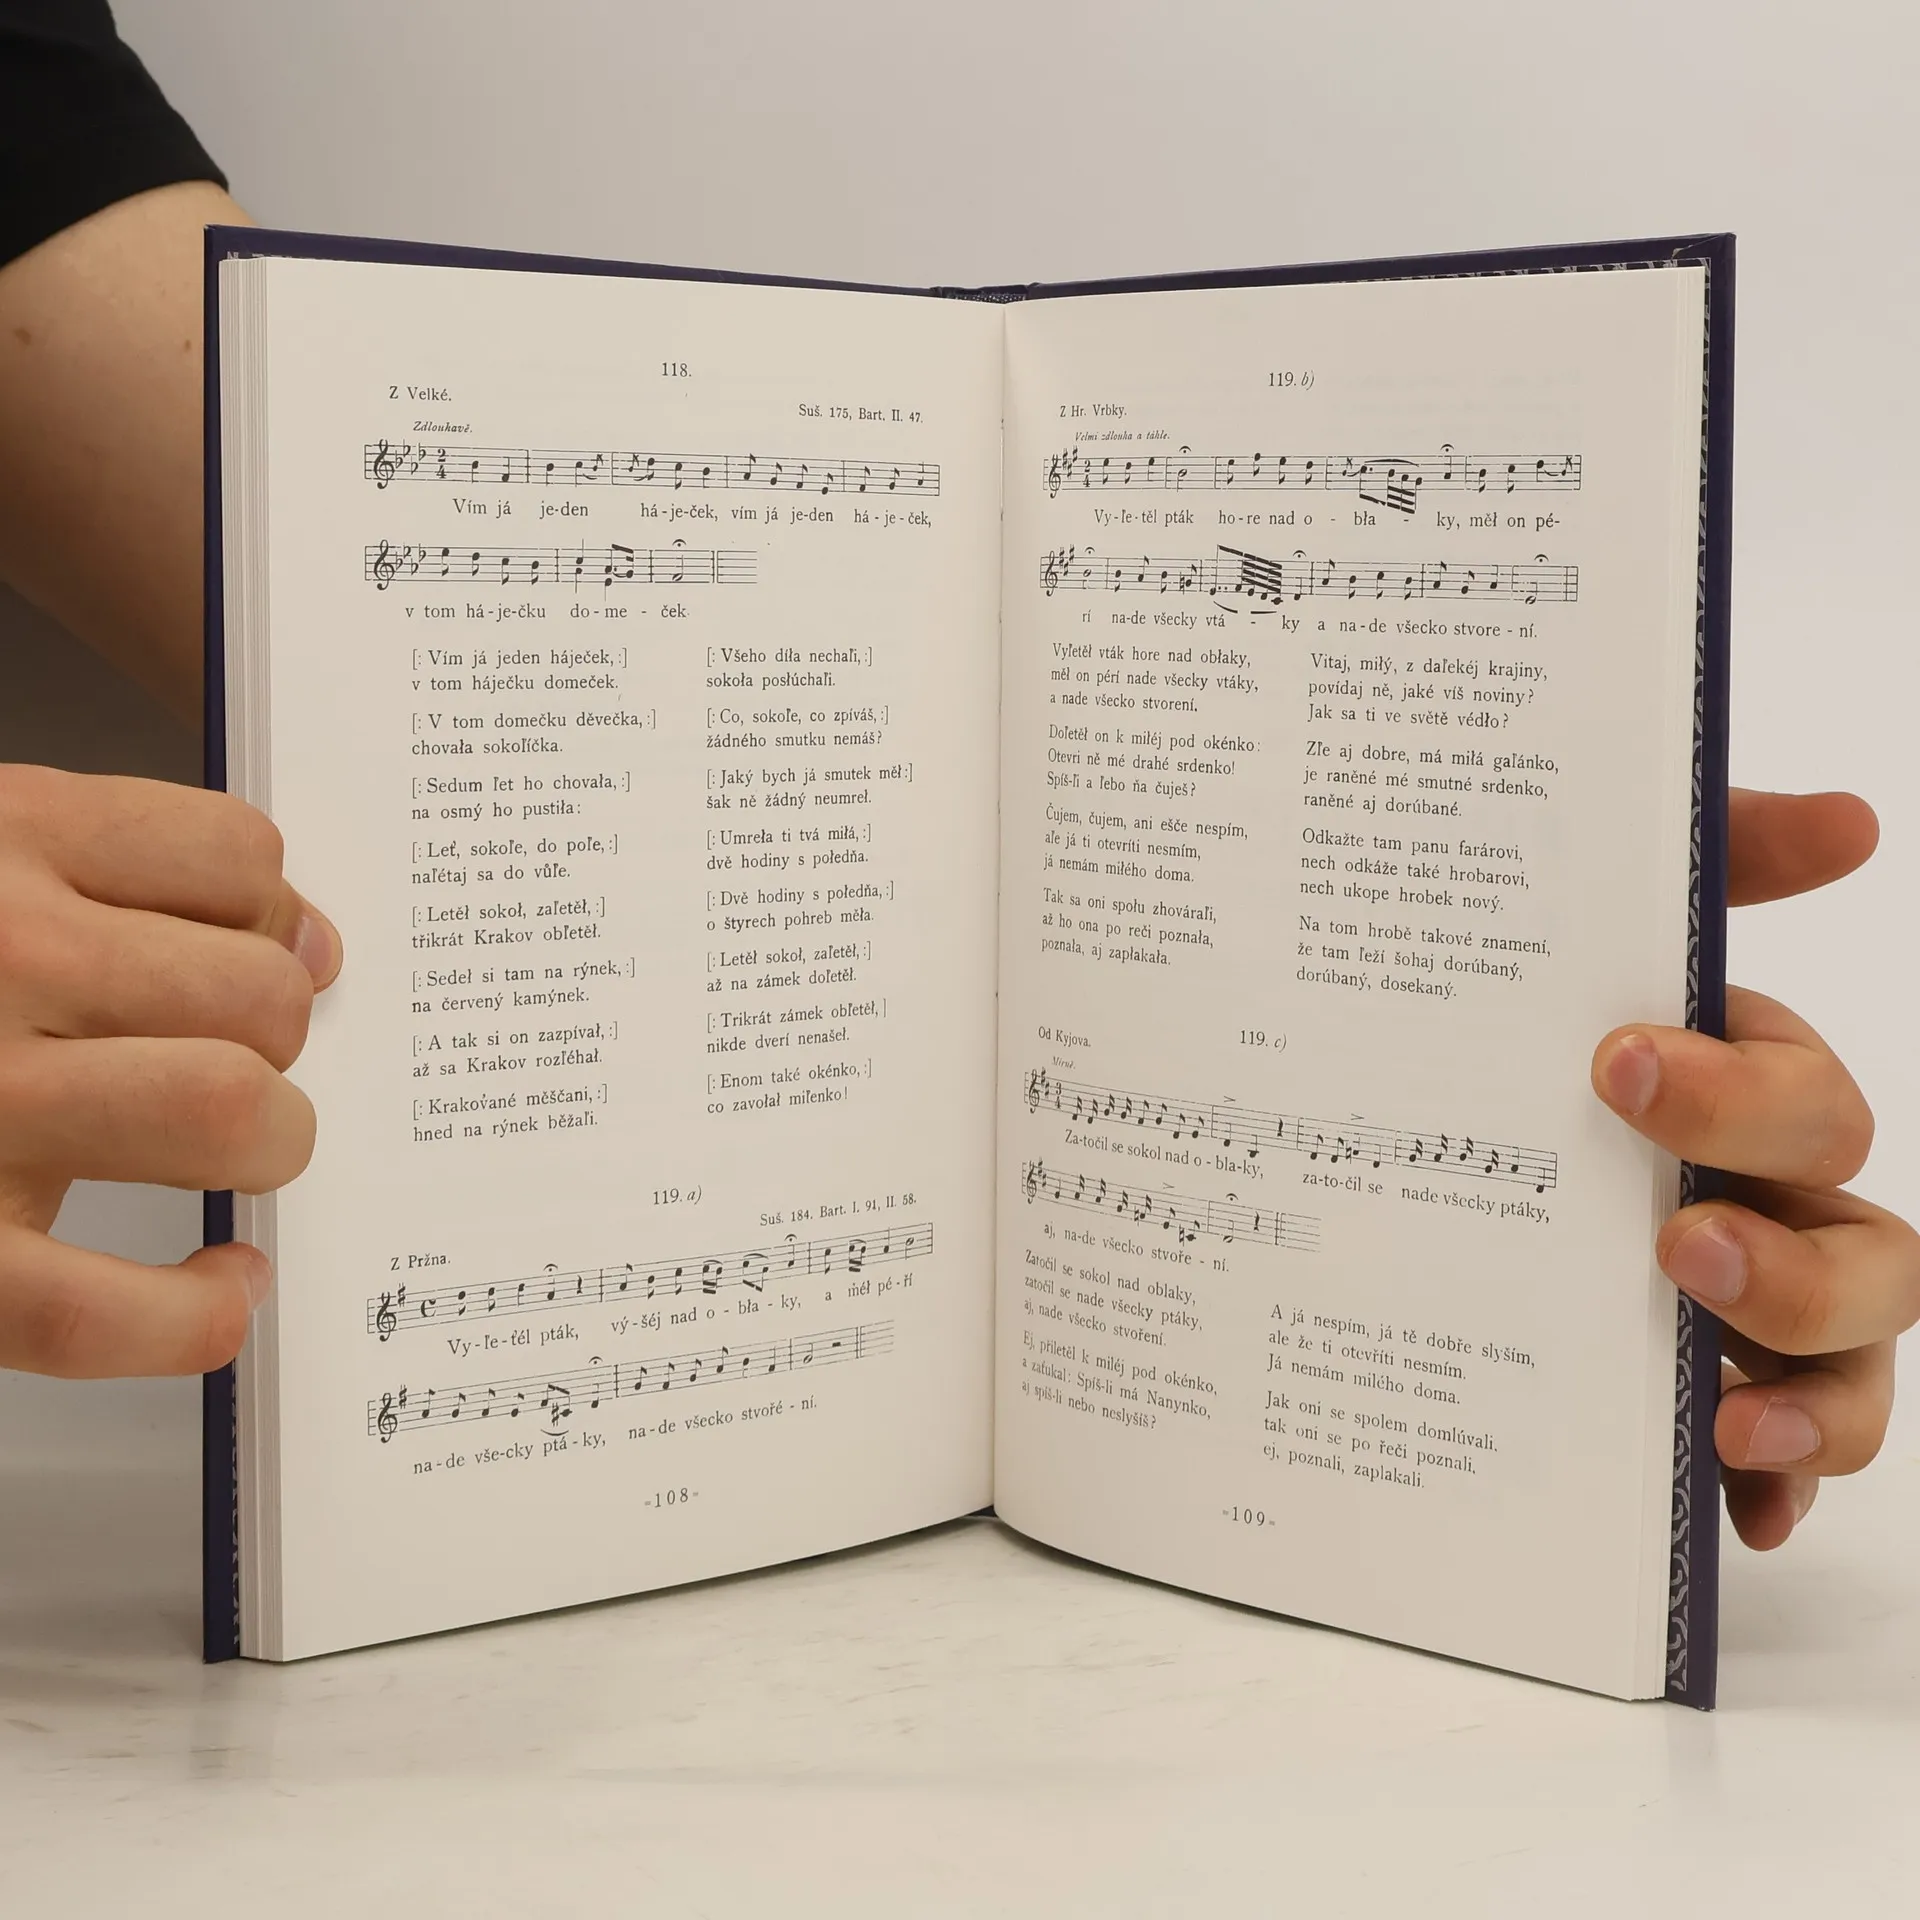 118.
Z Velké.
Suš. 175, Bart. II. 47.
Zdlouhavě.
Vím já je-den há-je-ček, vím já je-den há-je-ček,
v tom há-je-čku do-me-ček.
[: Vím já jeden háječek, :]
v tom háječku domeček.
[: V tom domečku děvečka, :]
chovała sokolíčka.
[: Sedum ľet ho chovała, :]
na osmý ho pustiła:
[: Leť, sokoľe, do poľe, :]
naľétaj sa do vůľe.
[: Letěł sokoł, zaľetěł, :]
třikrát Krakov obľetěł.
[: Sedeł si tam na rýnek, :]
na červený kamýnek.
[: A tak si on zazpívał, :]
až sa Krakov rozľéhał.
[: Krakované měščani, :]
hned na rýnek běžaľi.
[: Všeho díła nechaľi, :]
sokoła posłúchaľi.
[: Co, sokoľe, co zpíváš, :]
žádného smutku nemáš?
[: Jaký bych já smutek měł :]
šak ně žádný neumreł.
[: Umreła ti tvá miłá, :]
dvě hodiny s połedňa.
[: Dvě hodiny s połedňa, :]
o štyrech pohreb měła.
[: Letěł sokoł, zaľetěł, :]
až na zámek doľetěł.
[: Trikrát zámek obľetěł, ]
nikde dverí nenašeł.
[: Enom také okénko, :]
co zavołał miľenko!
119. a)
Suš. 184, Bart. I. 91, II. 58.
Z Pržna.
Vy-ľe-ťél pták, vý-šéj nad o-bła-ky, a měł pé-ří
na-de vše-cky ptá-ky, na-de všecko stvoře-ní.
-108-
119. b)
Z Hr. Vrbky.
Velmi zdlouha a táhle.
Vy-ľe-těl pták ho-re nad o-bła-ky, měł on pé-
rí na-de všecky vtá-ky a na-de všecko stvore-ní.
Vyľetěł vták hore nad obłaky,
měł on pérí nade všecky vtáky,
a nade všecko stvorení.
Doľetěł on k miłéj pod okénko:
Otevri ně mé drahé srdenko!
Spíš-ľi a ľebo ňa čuješ?
Čujem, čujem, ani ešče nespím,
aľe já ti otevríti nesmím,
já nemám miłého doma.
Tak sa oni społu zhováraľi,
až ho ona po reči poznała,
poznała, aj zapłakała.
Vitaj, miłý, z daľekéj krajiny,
povídaj ně, jaké víš noviny?
Jak sa ti ve světě védło?
Zľe aj dobre, má miłá gaľánko,
je raněné mé smutné srdenko,
raněné aj dorúbané.
Odkažte tam panu farárovi,
nech odkáže také hrobarovi,
nech ukope hrobek nový.
Na tom hrobě takové znamení,
že tam ľeží šohaj dorúbaný,
dorúbaný, dosekaný.
119. c)
Od Kyjova.
Mírně.
Za-točil se sokol nad o-bla-ky, za-to-čil se nade všecky ptáky,
aj, na-de všecko stvoře-ní.
Zatočil se sokol nad oblaky,
zatočil se nade všecky ptáky,
aj, nade všecko stvoření.
Ej, přiletěl k miléj pod okénko,
a zaťukal: Spíš-li má Nanynko,
aj spíš-li nebo neslyšíš?
A já nespím, já tě dobře slyším,
ale že ti otevříti nesmím.
Já nemám milého doma.
Jak oni se spolem domlúvali,
tak oni se po řeči poznali,
ej, poznali, zaplakali.
-109-